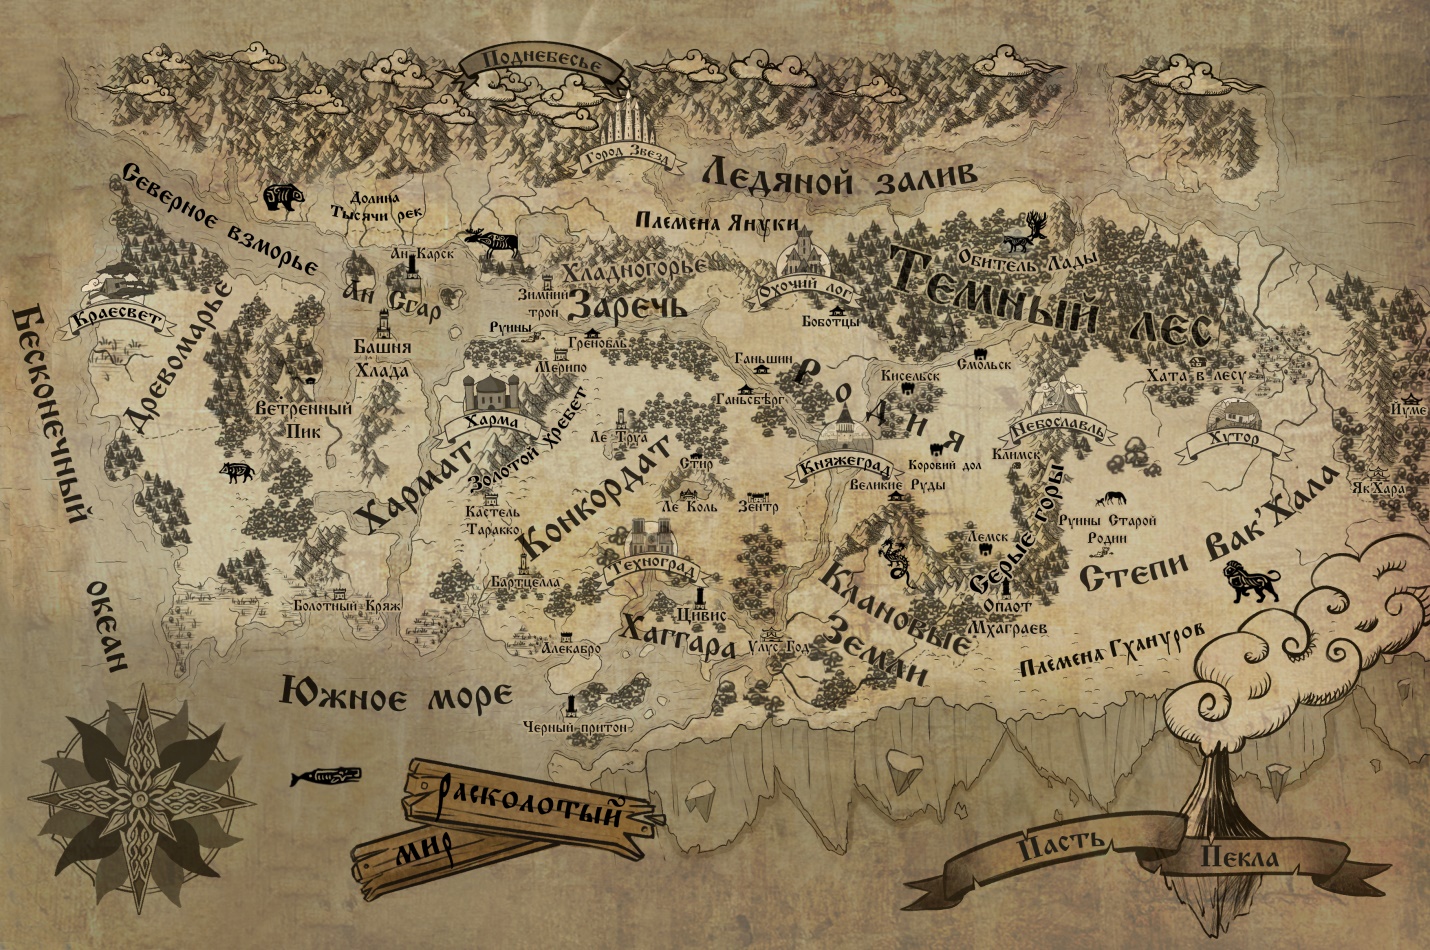 Поднебесье
Город Звезд
Ледяной залив
Северное взморье
Долина
Тысячи рек
Племена Януки
Ан Карск
Ан Сгар
Хладногорье
Обитель Лады
Темный лес
Охочий лог
Зимний
трой
Заречь
Боботцы
Краесвет
Руины
Гренобль
Башня
Хлада
Мерипо
Ганьшин
Смольск
Бесконечный
океан
Древоморье
Родия
Кисельск
Хата в лесу
Ганьсбѣрг
Ветренный
Пик
Харма
Йуме
Золотой хребет
Ле Труа
Небославль
Хутор
Княжеград
Коровий дол
Климск
Стир
Хармат
Великие Руды
ЯкХара
Кастель
Таракко
Ле Коль
Зентр
Конкордат
Руины Старой
Родии
Лемск
Серые горы
Степи Вак'Хала
Техноград
Бартцелла
Болотный Кряж
Цивис
Клановые
Земли
Оплот
Мхаграев
Хаггара
Улус Год
Алекабро
Племена Гхануров
Южное море
Черный притон
расколотый
мир
Пасть
Пекла